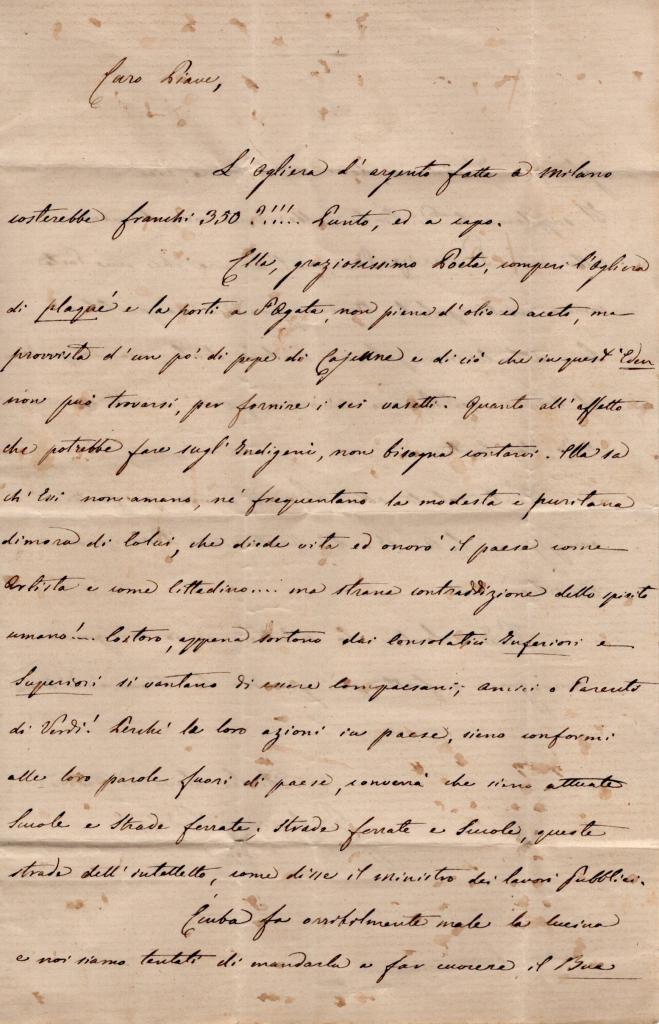 Caro Piave,
L'Ogliera d'argento fatta a Milano
costerebbe franchi 350 ?!!!.... Punto, ed a capo.
Ella, graziosissimo Poeta, comperi l'Ogliera
di plaqué e la porti a S. Agata, non piena d'olio ed aceto, ma
provvista d'un po' di pepe di Cajenne e di ciò che in quest'Eden
non può trovarsi, per fornire i sei vasetti. Quanto all'effetto
che potrebbe fare sugl'Indigeni, non bisogna contarvi. Ella sa
ch'Essi non amano, né frequentano la modesta e puritana
dimora di Colui, che diede vita ed onorò il paese come
Artista e come Cittadino.... ma strana contraddizione dello spirito
umano!... Costoro, appena sortono dai Consolatici Inferiori e
Superiori si vantano di essere Compaesani, Amici o Parenti
di Verdi! Perché le loro azioni in paese, sieno conformi
alle loro parole fuori di paese, converrà che sieno attuate
Scuole e Strade ferrate; Strade ferrate e Scuole, queste
strade dell'intelletto, come disse il ministro dei lavori Pubblici.
fa orribilmente male la cucina
e noi siamo tentati di mandarla a far cuocere il Bue